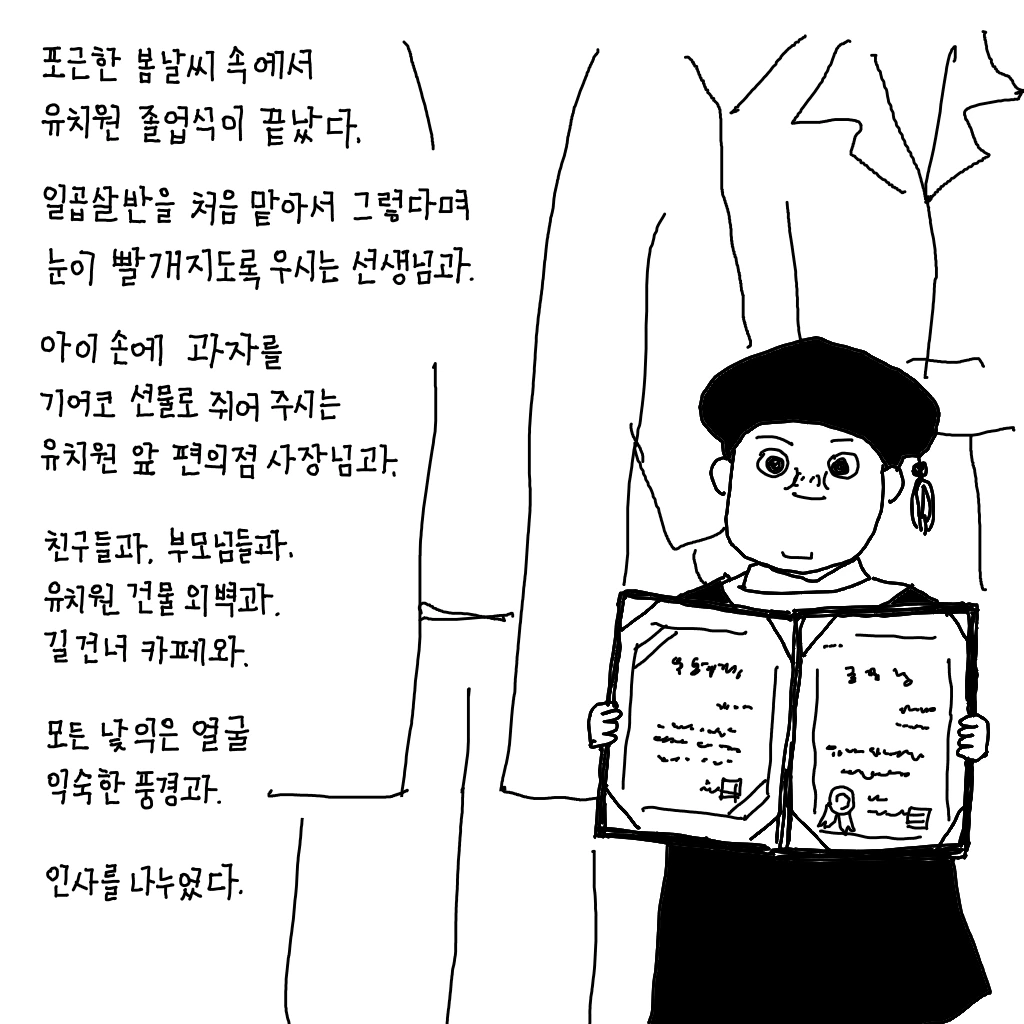 포근한 봄날씨 속에서
유치원 졸업식이 끝났다.
일곱살반을 처음 맡아서 그렇다며
눈이 빨개지도록 우시는 선생님과.
아이 손에 과자를
기어코 선물로 쥐어 주시는
유치원 앞 편의점 사장님과.
친구들과. 부모님들과.
유치원 건물 외벽과.
길건너 카페와.
모든 낯익은 얼굴
익숙한 풍경과.
인사를 나누었다.